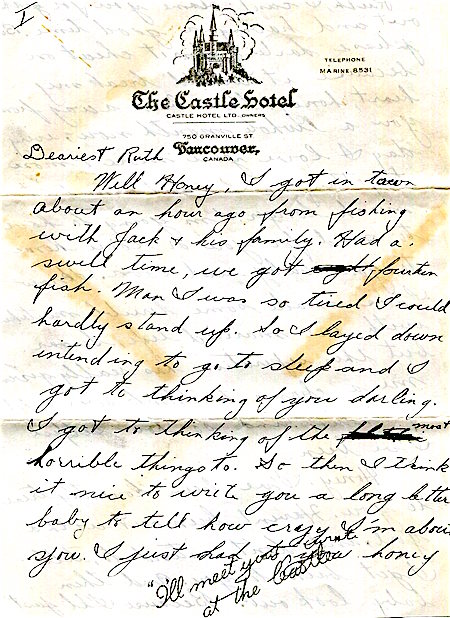 I
TELEPHONE
MARINE 8531
The Castle Hotel
CASTLE HOTEL LTD. OWNERS
750 GRANVILLE ST
Vancouver,
CANADA
Dearest Ruth
Well Honey, I got in town
about an hour ago from fishing
with Jack & his family. Had a
swell time, we got fourteen
fish. Man I was so tired I could
hardly stand up. So I layed down
intending to go to sleep and I
got to thinking of you darling.
I got to thinking of the most
horrible things to. So then I think
it nice to write you a long letter
baby to tell how crazy I'm about
you. I just had to honey
"I'll meet your
at the Castle"